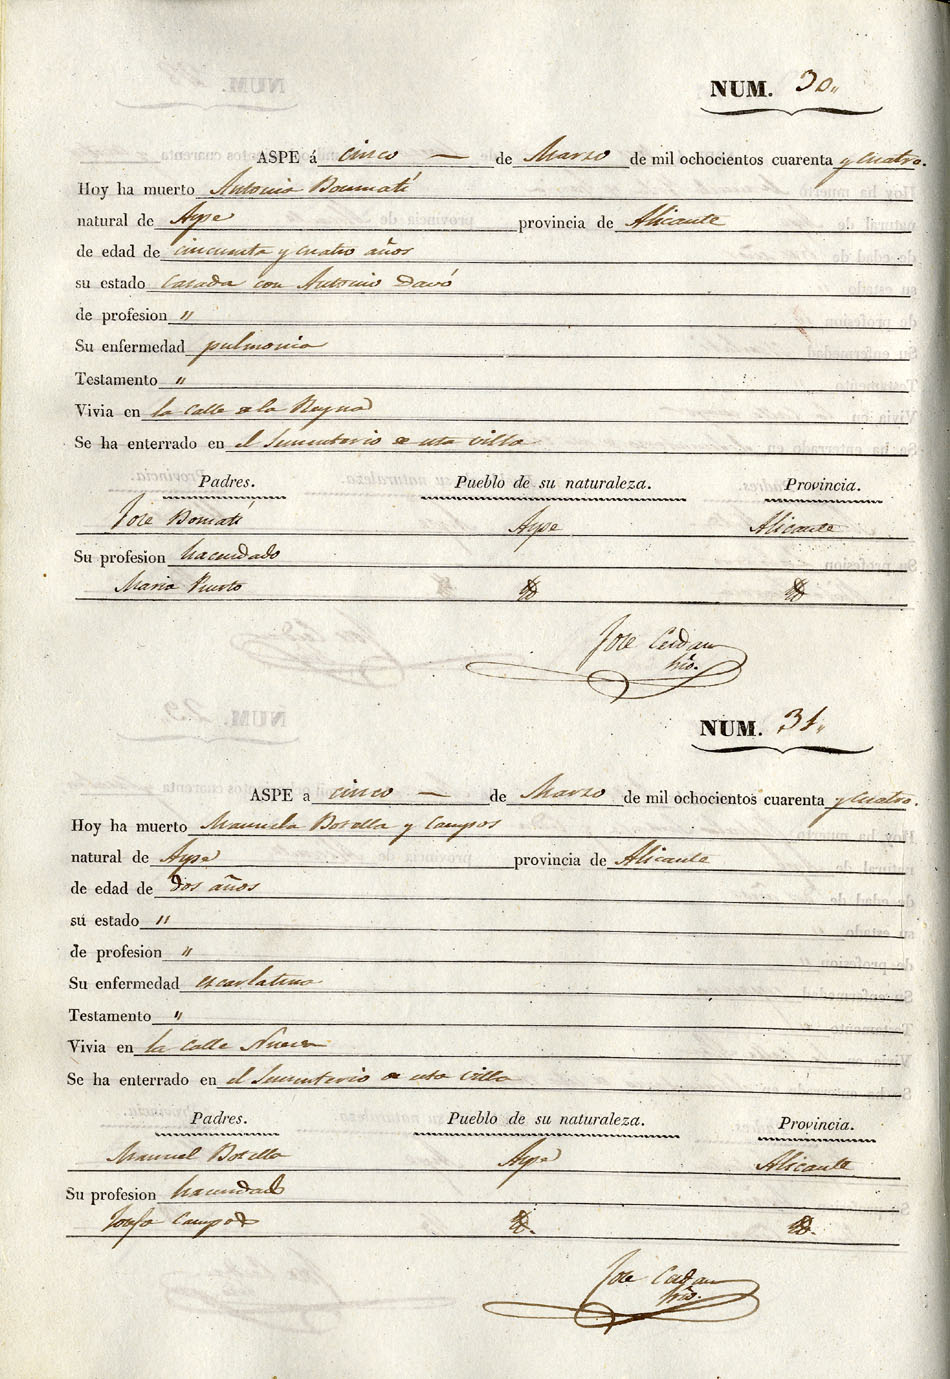 NUM. 30„
ASPE á cinco — de Marzo de mil ochocientos cuarenta y cuatro.
Hoy ha muerto Antonia Boumatí
natural de Aspe provincia de Alicante
de edad de cincuenta y cuatro años
su estado casada con Antonio Davó
de profesion „
Su enfermedad pulmonia
Testamento „
Vivia en la Calle de la Reyna
Se ha enterrado en el Sementerio de esta villa
Padres. Pueblo de su naturaleza. Provincia.
Jose Bomatí Aspe Alicante
Su profesion hacendado
Maria Puerto
Jose Cerdan
hio.
NUM. 31„
ASPE a cinco — de Marzo de mil ochocientos cuarenta y cuatro.
Hoy ha muerto Manuela Botella y Campos
natural de Aspe provincia de Alicante
de edad de dos años
su estado „
de profesion „
Su enfermedad escarlatina
Testamento „
Vivia en la Calle Nueva
Se ha enterrado en el Sementerio de esta villa
Padres. Pueblo de su naturaleza. Provincia.
Manuel Botella Aspe Alicante
Su profesion hacendado
Josefa Campos
Jose Cerdan
hio.